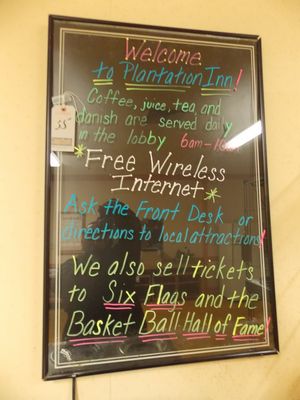 Welcome
to Plantation Inn!
Coffee, juice, tea, and
danish are served daily
in the lobby 6am-10am
*Free Wireless
Internet*
Ask the Front Desk or
directions to local attractions!
We also sell tickets
to Six Flags and the
Basket Ball Hall of Fame!
35